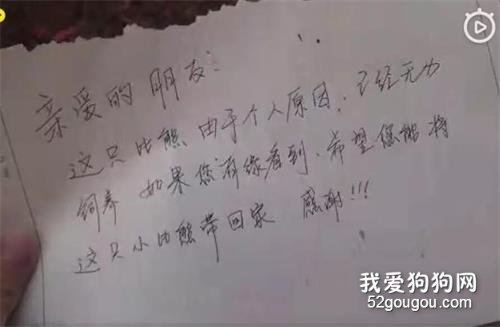 亲爱的朋友：
这只比熊，由于个人原因，已经无力
饲养 如果您有缘看到，希望您能将
这只小比熊带回家 感谢!!!
我爱狗狗网
52gougou.com